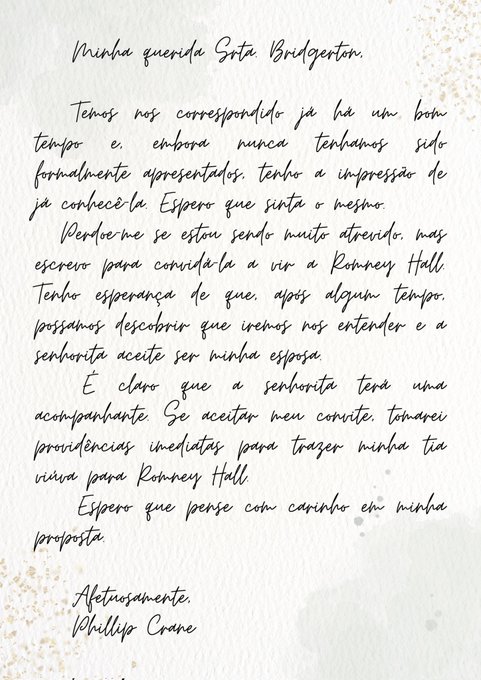 Minha querida Srta. Bridgerton,
Temos nos correspondido já há um bom
tempo e, embora nunca tenhamos sido
formalmente apresentados, tenho a impressão de
já conhecê-la. Espero que sinta o mesmo.
Perdoe-me se estou sendo muito atrevido, mas
escrevo para convidá-la a vir a Romney Hall.
Tenho esperança de que, após algum tempo,
possamos descobrir que iremos nos entender e a
senhorita aceite ser minha esposa.
É claro que a senhorita terá uma
acompanhante. Se aceitar meu convite, tomarei
providências imediatas para trazer minha tia
viúva para Romney Hall.
Espero que pense com carinho em minha
proposta.
Afetuosamente,
Phillip Crane